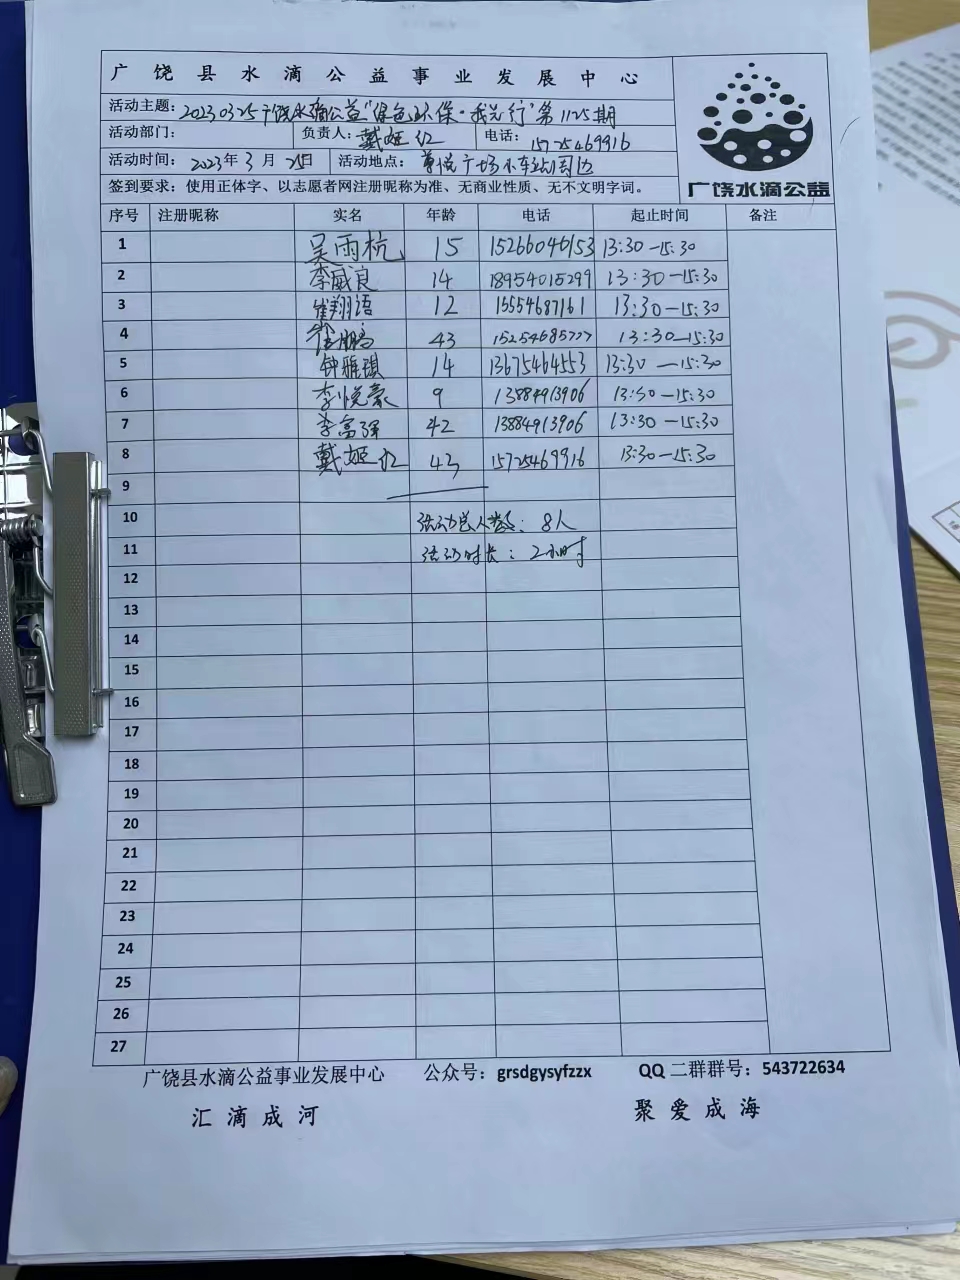 广饶县水滴公益事业发展中心
活动主题：20230325广饶水滴公益"绿色环保·我先行"第1125期
活动部门： 负责人：戴姬红 电话：15725469916
活动时间：2023年3月25日 活动地点：尊悦广场小车站周边
签到要求：使用正体字、以志愿者网注册昵称为准、无商业性质、无不文明字词。
广饶水滴公益
序号 注册昵称 实名 年龄 电话 起止时间 备注
1 吴雨杭 15 15266046153 13:30—15:30
2 李威良 14 18954015299 13:30—15:30
3 崔翔语 12 15554687161 13:30—15:30
4 崔鹏 43 15254685777 13:30—15:30
5 钟雅琪 14 13675464553 13:30—15:30
6 李悦豪 9 13884913906 13:30—15:30
7 李富强 42 13884913906 13:30—15:30
8 戴姬红 43 15725469916 13:30—15:30
9
10 活动总人数：8人
11 活动时长：2小时
12
13
14
15
16
17
18
19
20
21
22
23
24
25
26
27
广饶县水滴公益事业发展中心 公众号：grsdgysyfzzx QQ二群群号：543722634
汇滴成河 聚爱成海